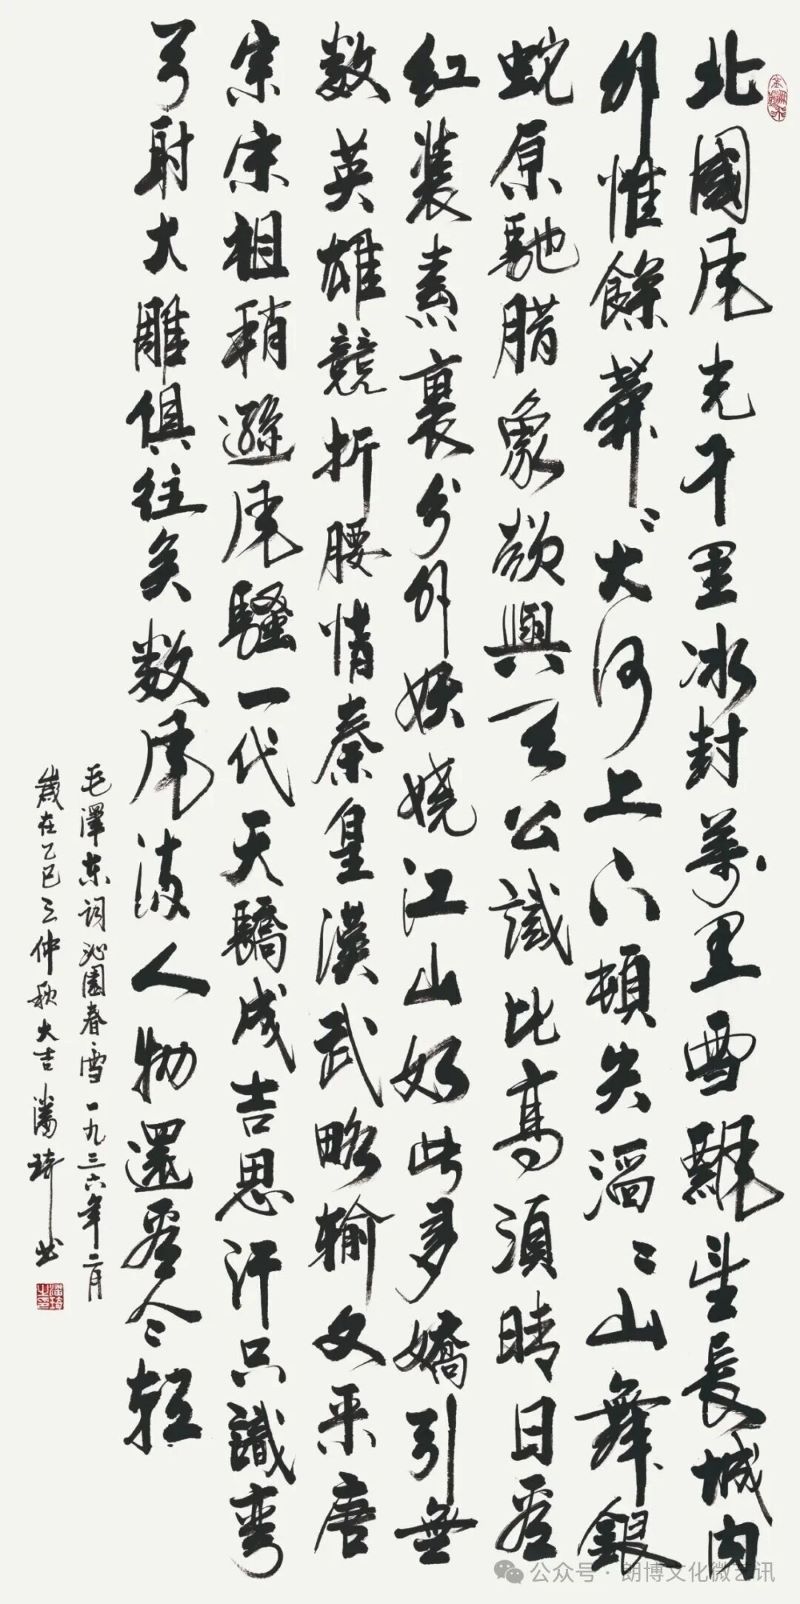 北國風光千里冰封萬里雪飄望長城內
外惟餘莽〻大河上下頓失滔〻山舞銀
蛇原馳腊象欲與天公試比高須晴日看
紅裝素裹分外妖嬈江山如此多嬌引無
数英雄競折腰惜秦皇漢武略輸文采唐
宗宋祖稍遜風騷一代天驕成吉思汗只識彎
弓射大雕俱往矣数風流人物還看今朝
毛澤東詞沁園春雪一九三六年二月
歲在乙巳之仲秋大吉潘琦书
潘琦之印
公众号·朗博文化微艺讯